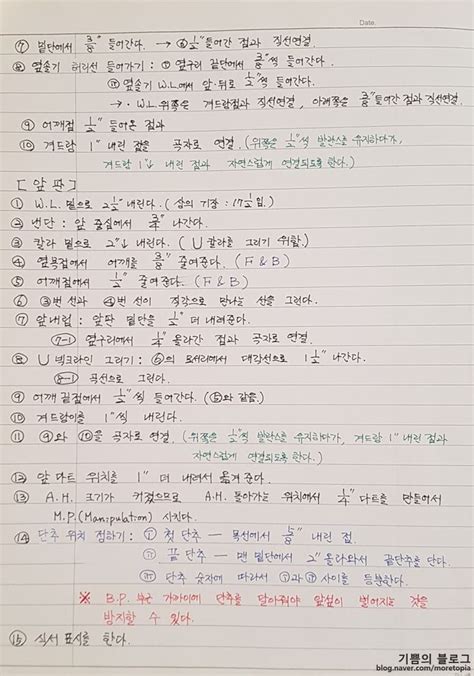 Date.
⑦ 밑단에서 3/8" 들어간다. → ⑥ 1/2" 들어간 점과 직선연결.
⑧ 옆솔기 허리선 들어가기 : ⓘ 옆구리 끝단에서 3/8"씩 들어간다.
ⓘⓘ 옆솔기 W.L에서 앞·뒤로 1/2"씩 들어간다.
→ · W.L. 위쪽은 겨드랑점과 직선연결, 아래쪽은 3/8" 들어간 점과 직선연결.
⑨ 어깨점 1/2" 들어온 점과
⑩ 겨드랑 1" 내린 점을 곡자로 연결. (위쪽은 1/2"씩 발란스로 유지하다가,
겨드랑 1"↓ 내린 점과 자연스럽게 연결되도록 한다.)
[앞판]
① W.L. 밑으로 2 1/2" 내린다. (상의 기장 : 17 1/2임.)
② 낸단 : 앞 중심에서 3/4" 나간다.
③ 칼라 밑으로 2"↓ 내린다. (U 칼라를 그리기 위함.)
④ 옆목점에서 어깨를 3/8" 줄여준다. (F & B)
⑤ 어깨점에서 1/2" 줄여준다. (F & B)
⑥ ③번 선과 ④번 선이 직각으로 만나는 선을 그린다.
⑦ 앞내림 : 앞판 밑단을 1/2" 더 내려준다.
⑦-1 옆구리에서 1/4" 올라간 점과 곡자로 연결.
⑧ U 넥크라인 그리기 : ⑥의 모서리에서 대각선으로 1 1/2" 나간다.
⑧-1 곡선으로 그린다.
⑨ 어깨 끝점에서 1/2"씩 들어간다. (⑤와 같음.)
⑩ 겨드랑이를 1"씩 내린다.
⑪ ⑨와 ⑩을 곡자로 연결. (위쪽은 1/2"씩 발란스를 유지하다가, 겨드랑 1" 내린 점과
자연스럽게 연결되도록 한다.)
⑫ 앞 다트 위치를 1" 더 내려서 옮겨준다.
⑬ A.H. 크기가 커졌으므로 A.H. 돌아가는 위치에서 1/4" 다트를 만들어서
M.P.(Manipulation) 시킨다.
⑭ 단추 위치 정하기 : ⓘ 첫 단추 — 목선에서 5/8" 내린 점.
ⓘⓘ 끝 단추 — 맨 밑단에서 2" 올라와서 끝단추를 단다.
ⓘⓘⓘ 단추 숫자에 따라서 ⓘ과 ⓘⓘ 사이를 등분한다.
※ B.P. 부근 가까이에 단추를 달아줘야 앞섶이 벌어지는 것을
방지할 수 있다.
⑮ 식서 표시를 한다.
기쁨의 블로그
blog.naver.com/moretopia